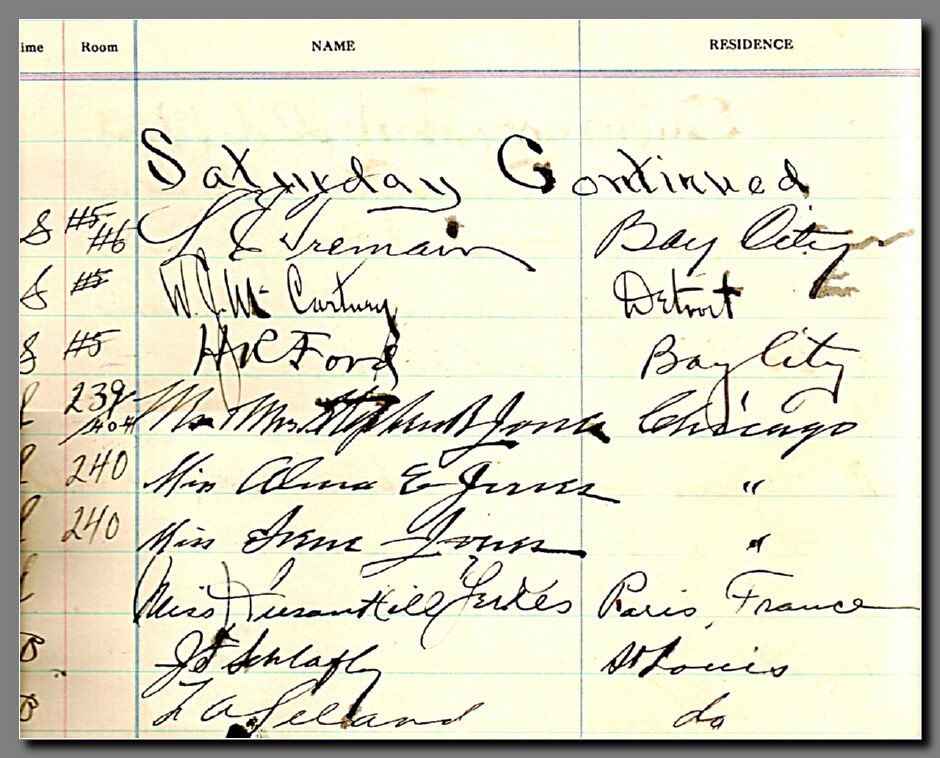 ime Room NAME RESIDENCE
Saturday Continued
S #5 #6 L E Tremain Bay City
S #5 W. J. Mc Cartney Detroit
S #5 H R Ford Bay City
239 Mr Mrs Stephen B Jones Chicago
240 Miss Alma E Jones "
240 Miss Irene Jones "
Miss Susan Hill Yerkes Paris, France
B J F Schlafly St Louis
B L A Leland do